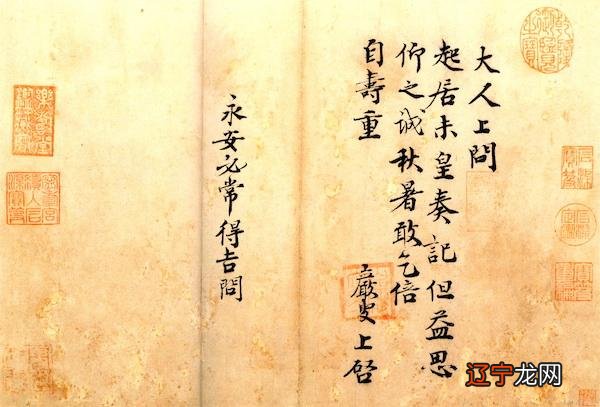 大人上問
起居未皇奏記但益思
仰之誠秋暑敢乞倍
自壽重
巖叟上啓
永安必常得吉問
辽宁龙网